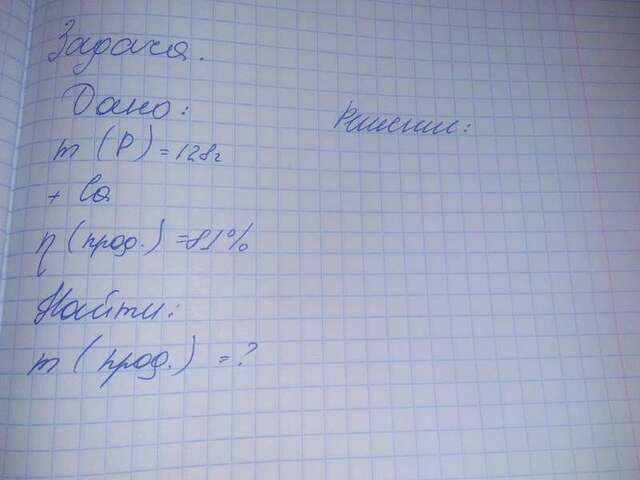 Задача.
Дано:
Решение:
m (P) = 128г
+ Ca
η (прод.) = 81%
Найти:
m (прод.) = ?